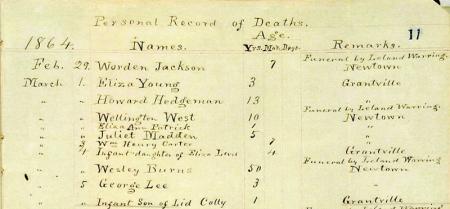 Personal Record of Deaths. 11
Age.
1864. Names. Yrs. Mon. Days. Remarks.
Funeral by Leland Warring.
Feb. 29. Worden Jackson 7 Newtown
March 1. Eliza Young 3 Grantville
" " Howard Hodgeman 13 "
Funeral by Leland Warring
" " Wellington West 10 Newtown
" " Eliza Ann Patrick 1 "
" " Juliet Madden 5 "
" 3 Wm Henry Carter 7
" 4 Infant daughter of Eliza 4 Grantville
Funeral by Leland Warring
" " Wezley Burns 50 Newtown
" 5 George Lee 3 "
" " Infant Son of Lid Colly 1 Grantville